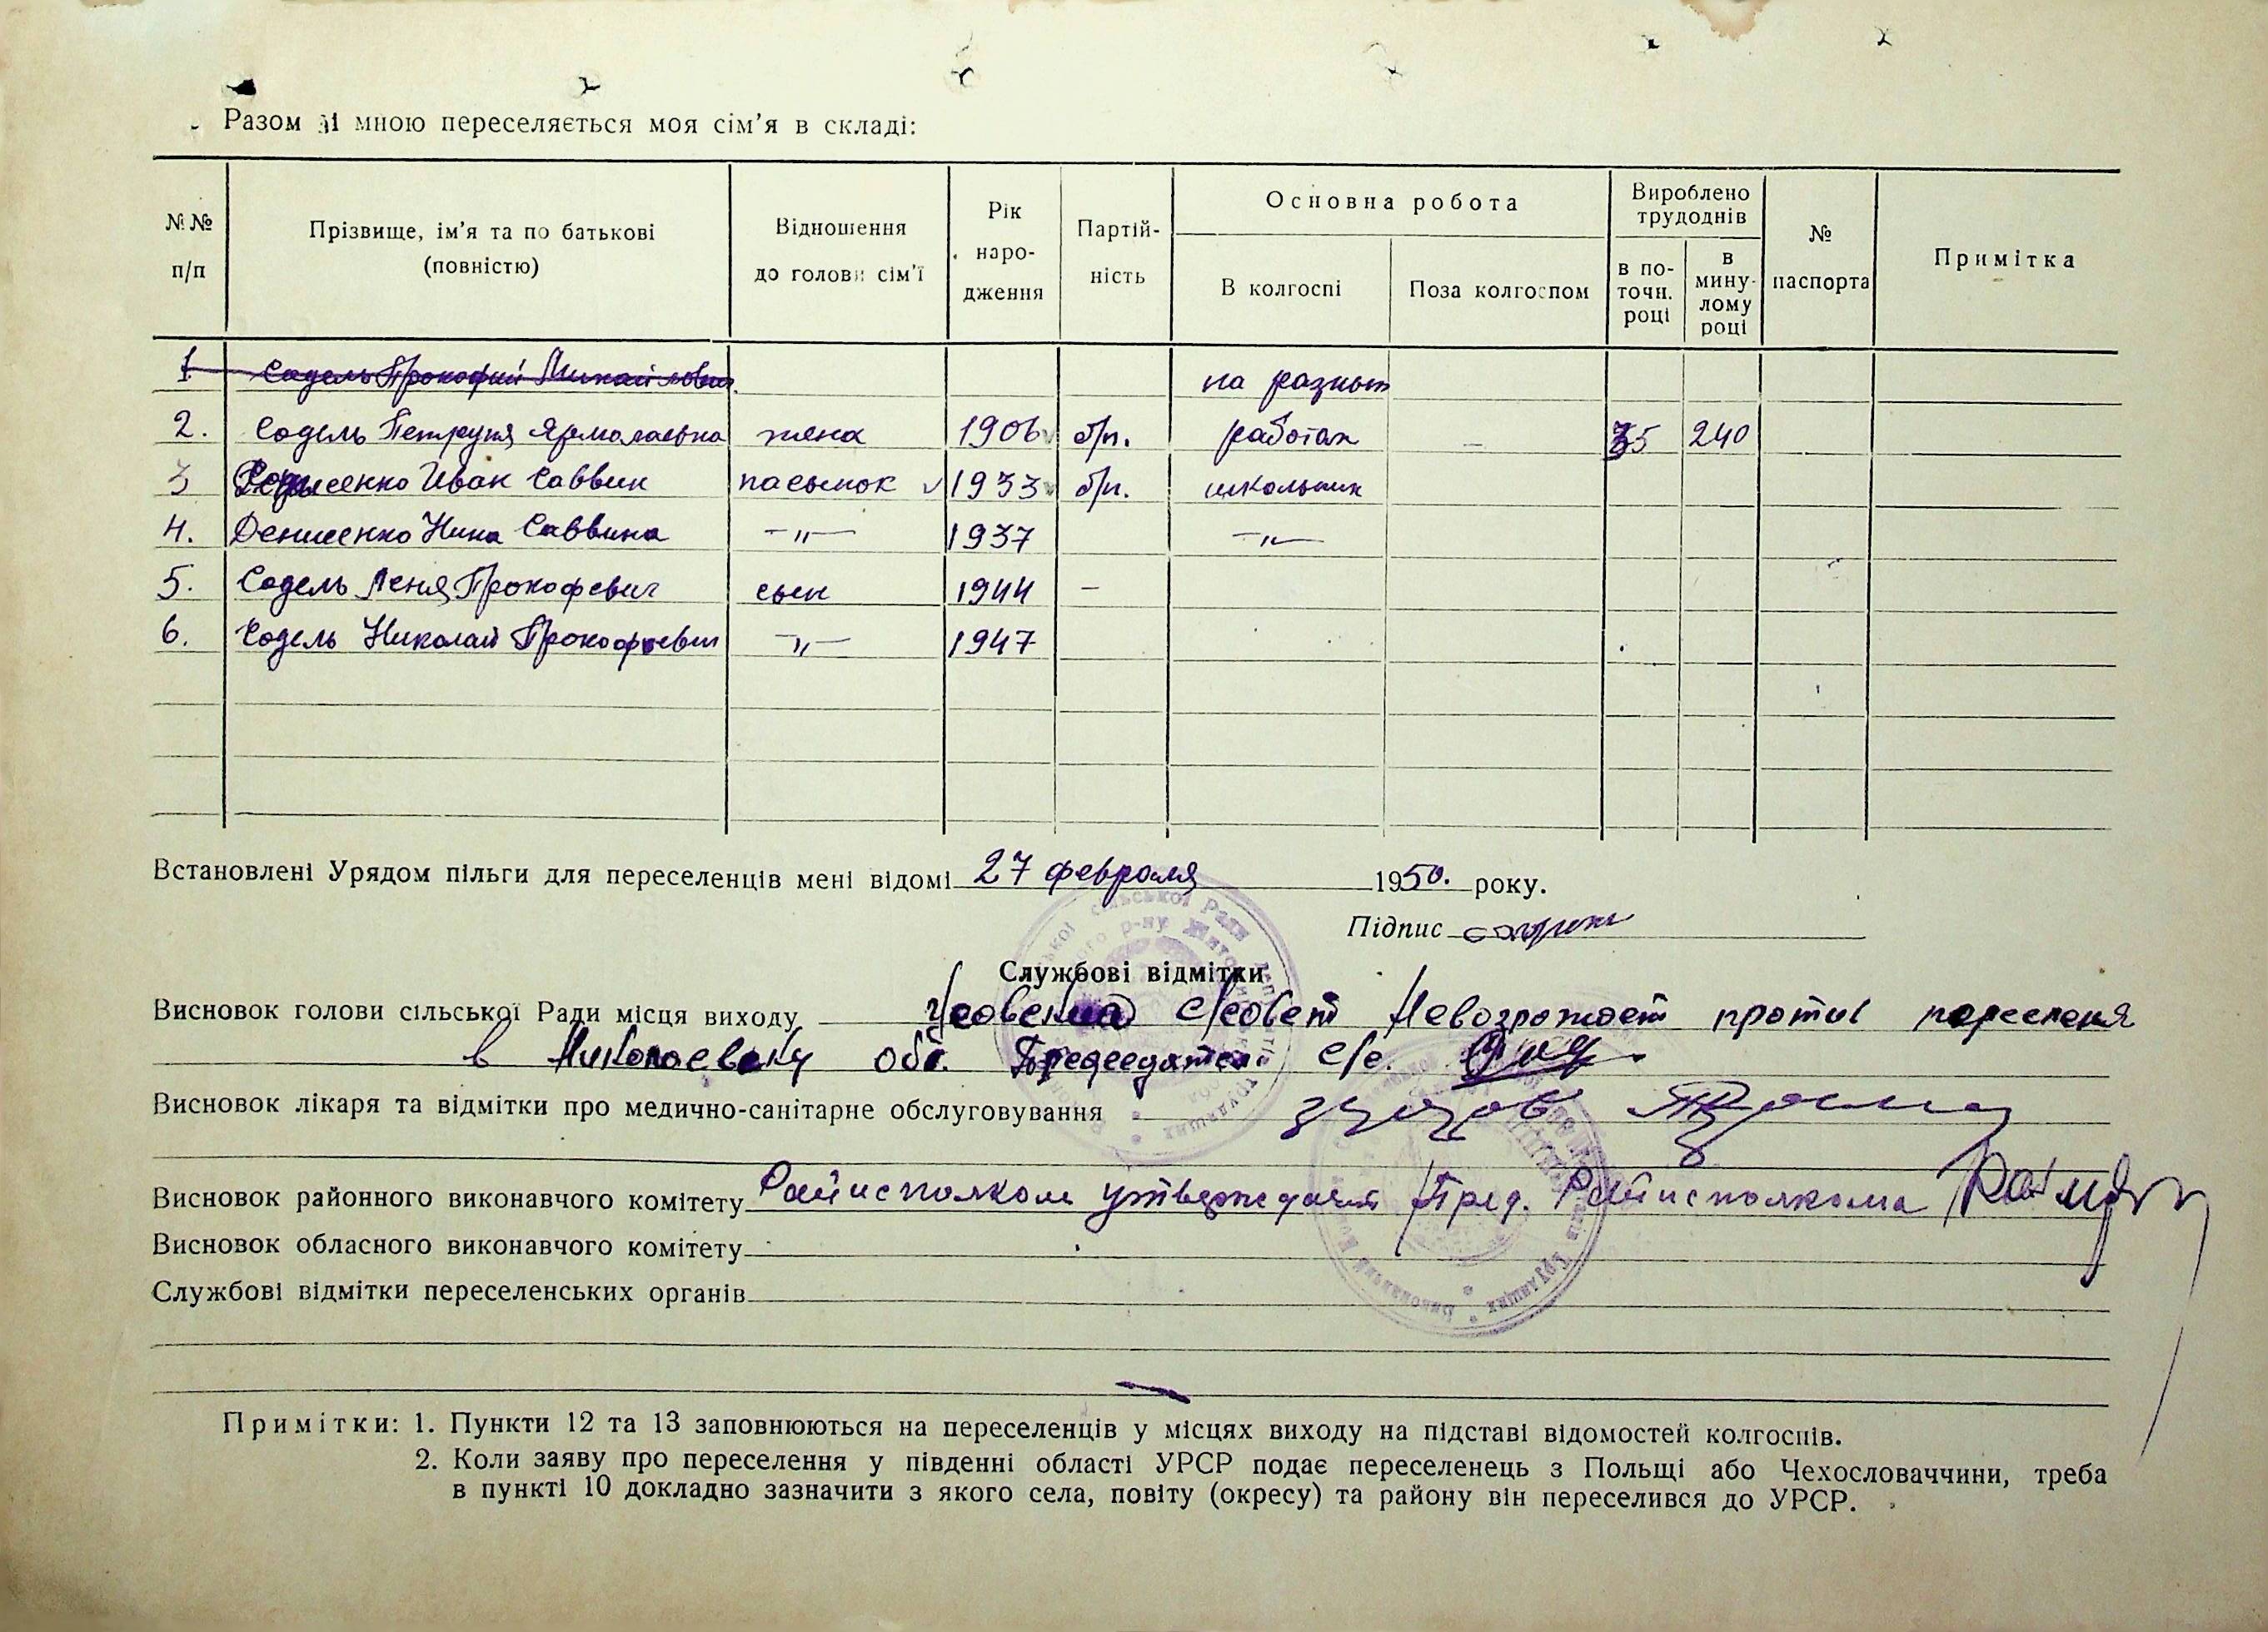 Разом зі мною переселяється моя сім'я в складі:
№№ п/п
Прізвище, ім'я та по батькові (повністю)
Відношення до голови сім'ї
Рік народження
Партійність
Основна робота
В колгоспі
Поза колгоспом
Вироблено трудоднів
в поточн. році
в минулому році
№ паспорта
Примітка
1. Содель Прокофий Михайлович на разных
2. Содель Петруня Ярмолаевна жена 1906 б/п. работах — 35 240
3 Денисенко Иван Саввич пасынок 1933 б/п. школьник
4. Денисенко Нина Саввина —"— 1937 —"—
5. Содель Леня Прокофевич сын 1944 —
6. Содель Николай Прокофьевич —"— 1947
Встановлені Урядом пільги для переселенців мені відомі 27 февраля 1950. року.
Підпис
Службові відмітки
Висновок голови сільської Ради місця виходу с/совет Невозрожает против переселеня
в Николоевску обл. Председатель с/с.
Висновок лікаря та відмітки про медично-санітарне обслуговування здоров
Висновок районного виконавчого комітету Райисполком утверждает Пред. Райисполкома
Висновок обласного виконавчого комітету
Службові відмітки переселенських органів
Примітки: 1. Пункти 12 та 13 заповнюються на переселенців у місцях виходу на підставі відомостей колгоспів.
2. Коли заяву про переселення у південні області УРСР подає переселенець з Польщі або Чехословаччини, треба
в пункті 10 докладно зазначити з якого села, повіту (окресу) та району він переселився до УРСР.